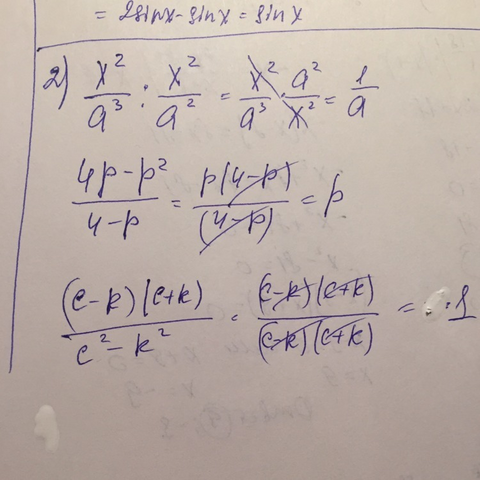 = 2sinx - sinx = sinx
2) x²/a³ : x²/a² = x²/a³ · a²/x² = 1/a
4p - p²/4 - p = p(4-p)/(4-p) = p
(c-k)(c+k)/c² - k² = (c-k)(c+k)/(c-k)(c+k) = 1